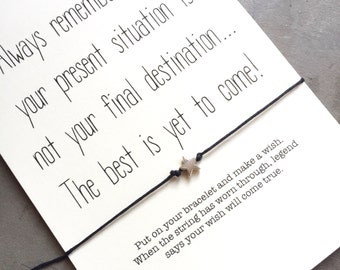 Always remember
your present situation is
not your final destination....
The best is yet to come!
Put on your bracelet and make a wish.
When the string has worn through, legend
says your wish will come true.